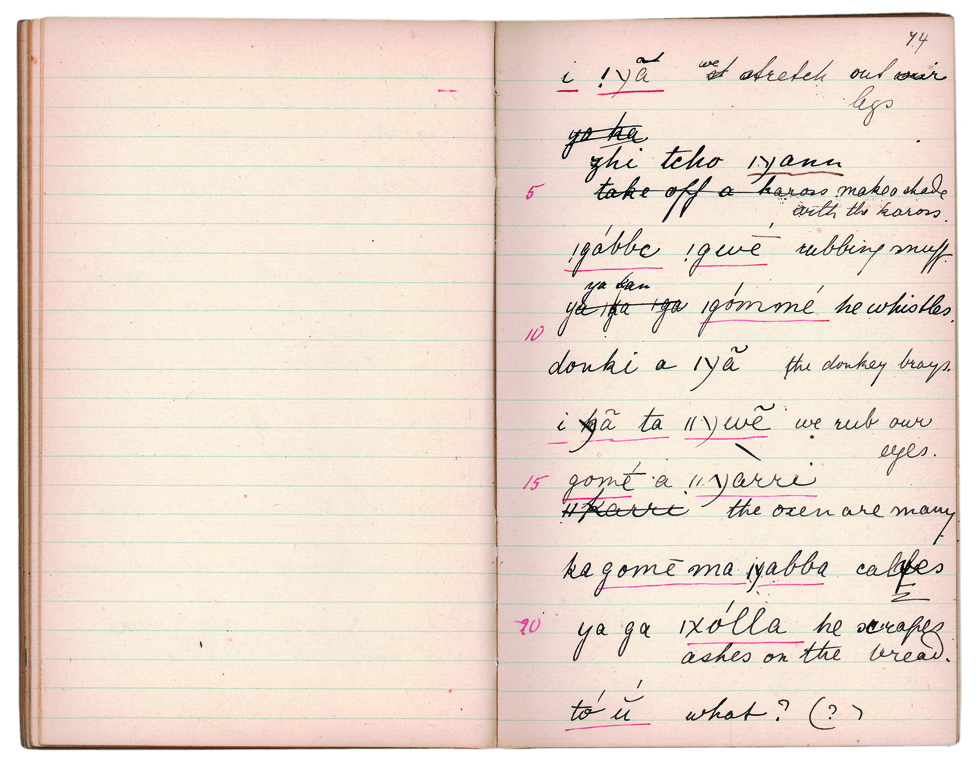 74
i !ɣã we stretch out our
legs
ya ka
zhi tcho |ɣann
5 take off a kaross make a shade
with the kaross.
|gábbe !gwē rubbing snuff.
ya kan
|gómmé he whistles.
10
donki a |ɣã the donkey brays.
i kã ta ||ɣwẽ we rub our
eyes.
15 gomé a ||ɣarri
||karri the oxen are many
ka gomē ma |ɣabba calfes
20 ya ga |xólla he scrapes
ashes on the bread.
tó ú what? (?)